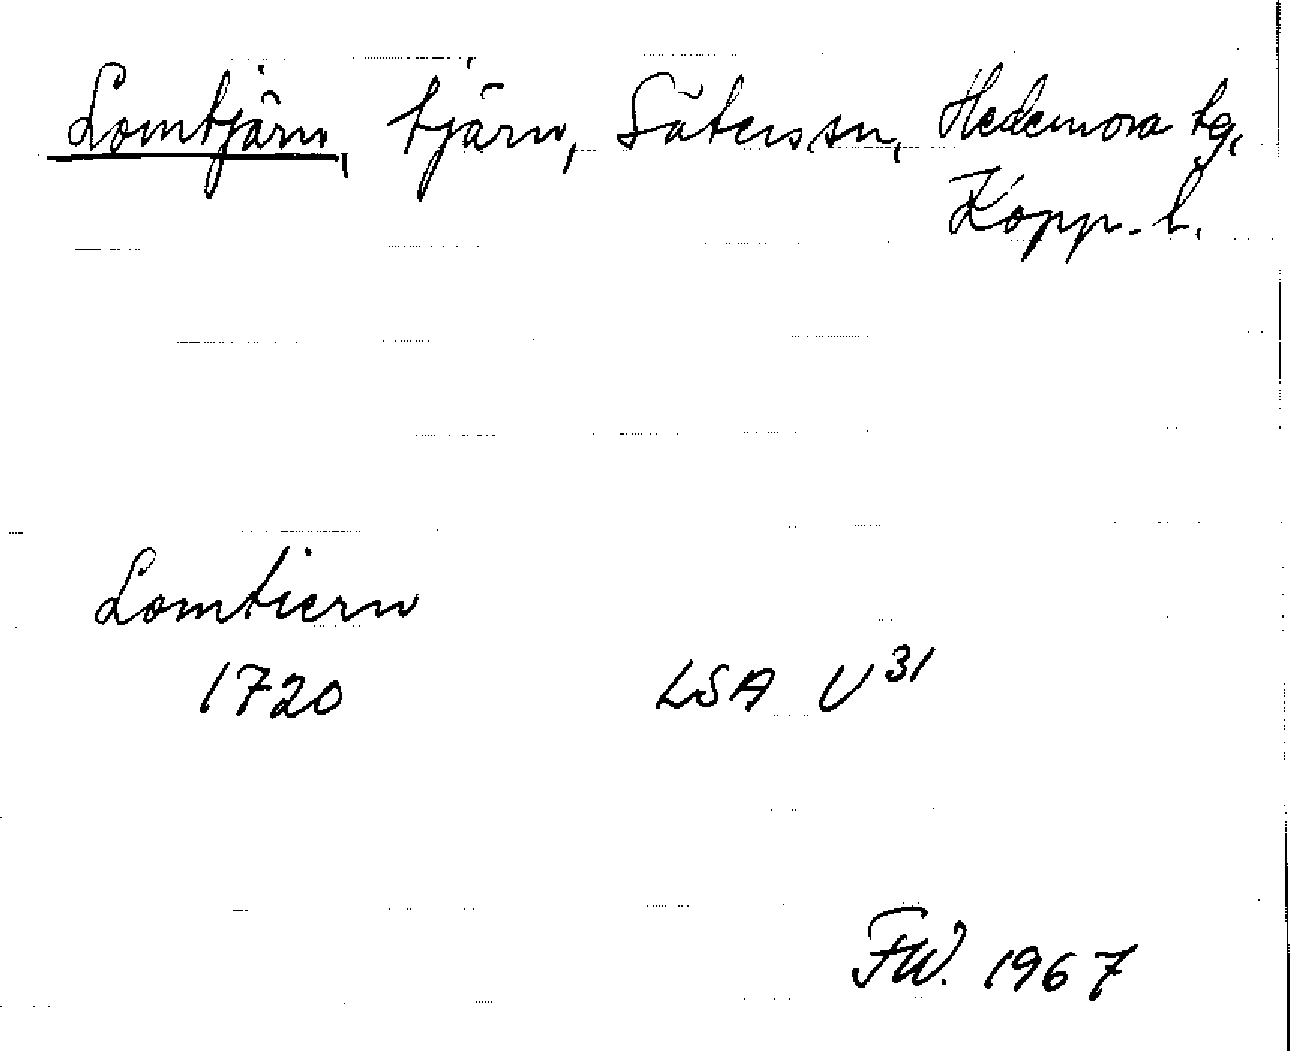 Lomtjärn, tjärn, Säters sn, Hedemora tg,
Kopp. l.
Lomtiern
1720 LSA U³¹
FW. 1967